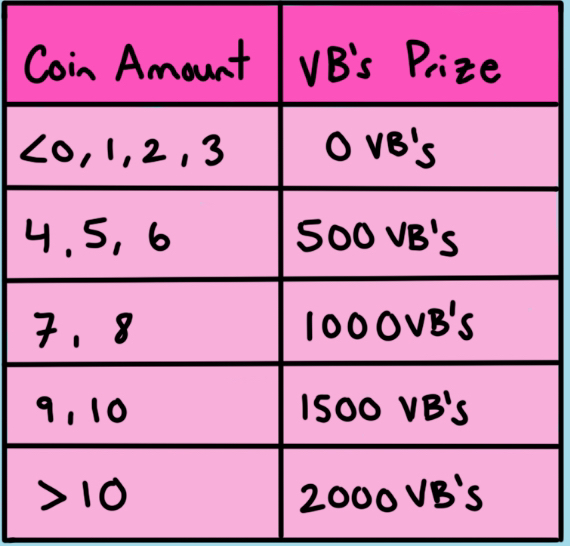 Coin Amount VB's Prize
<0, 1, 2, 3 0 VB's
4, 5, 6 500 VB's
7, 8 1000 VB's
9, 10 1500 VB's
>10 2000 VB's